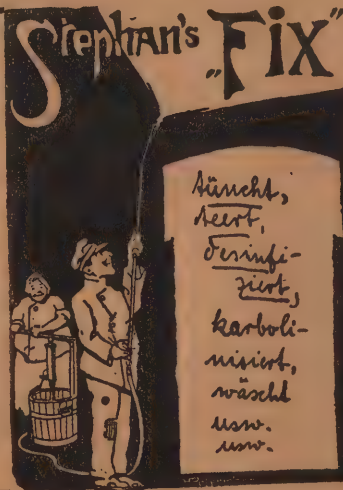 Stephan's „Fix"
tüncht,
teert,
desinfi-
ziert,
karboli-
nisiert,
wäscht
usw.
usw.